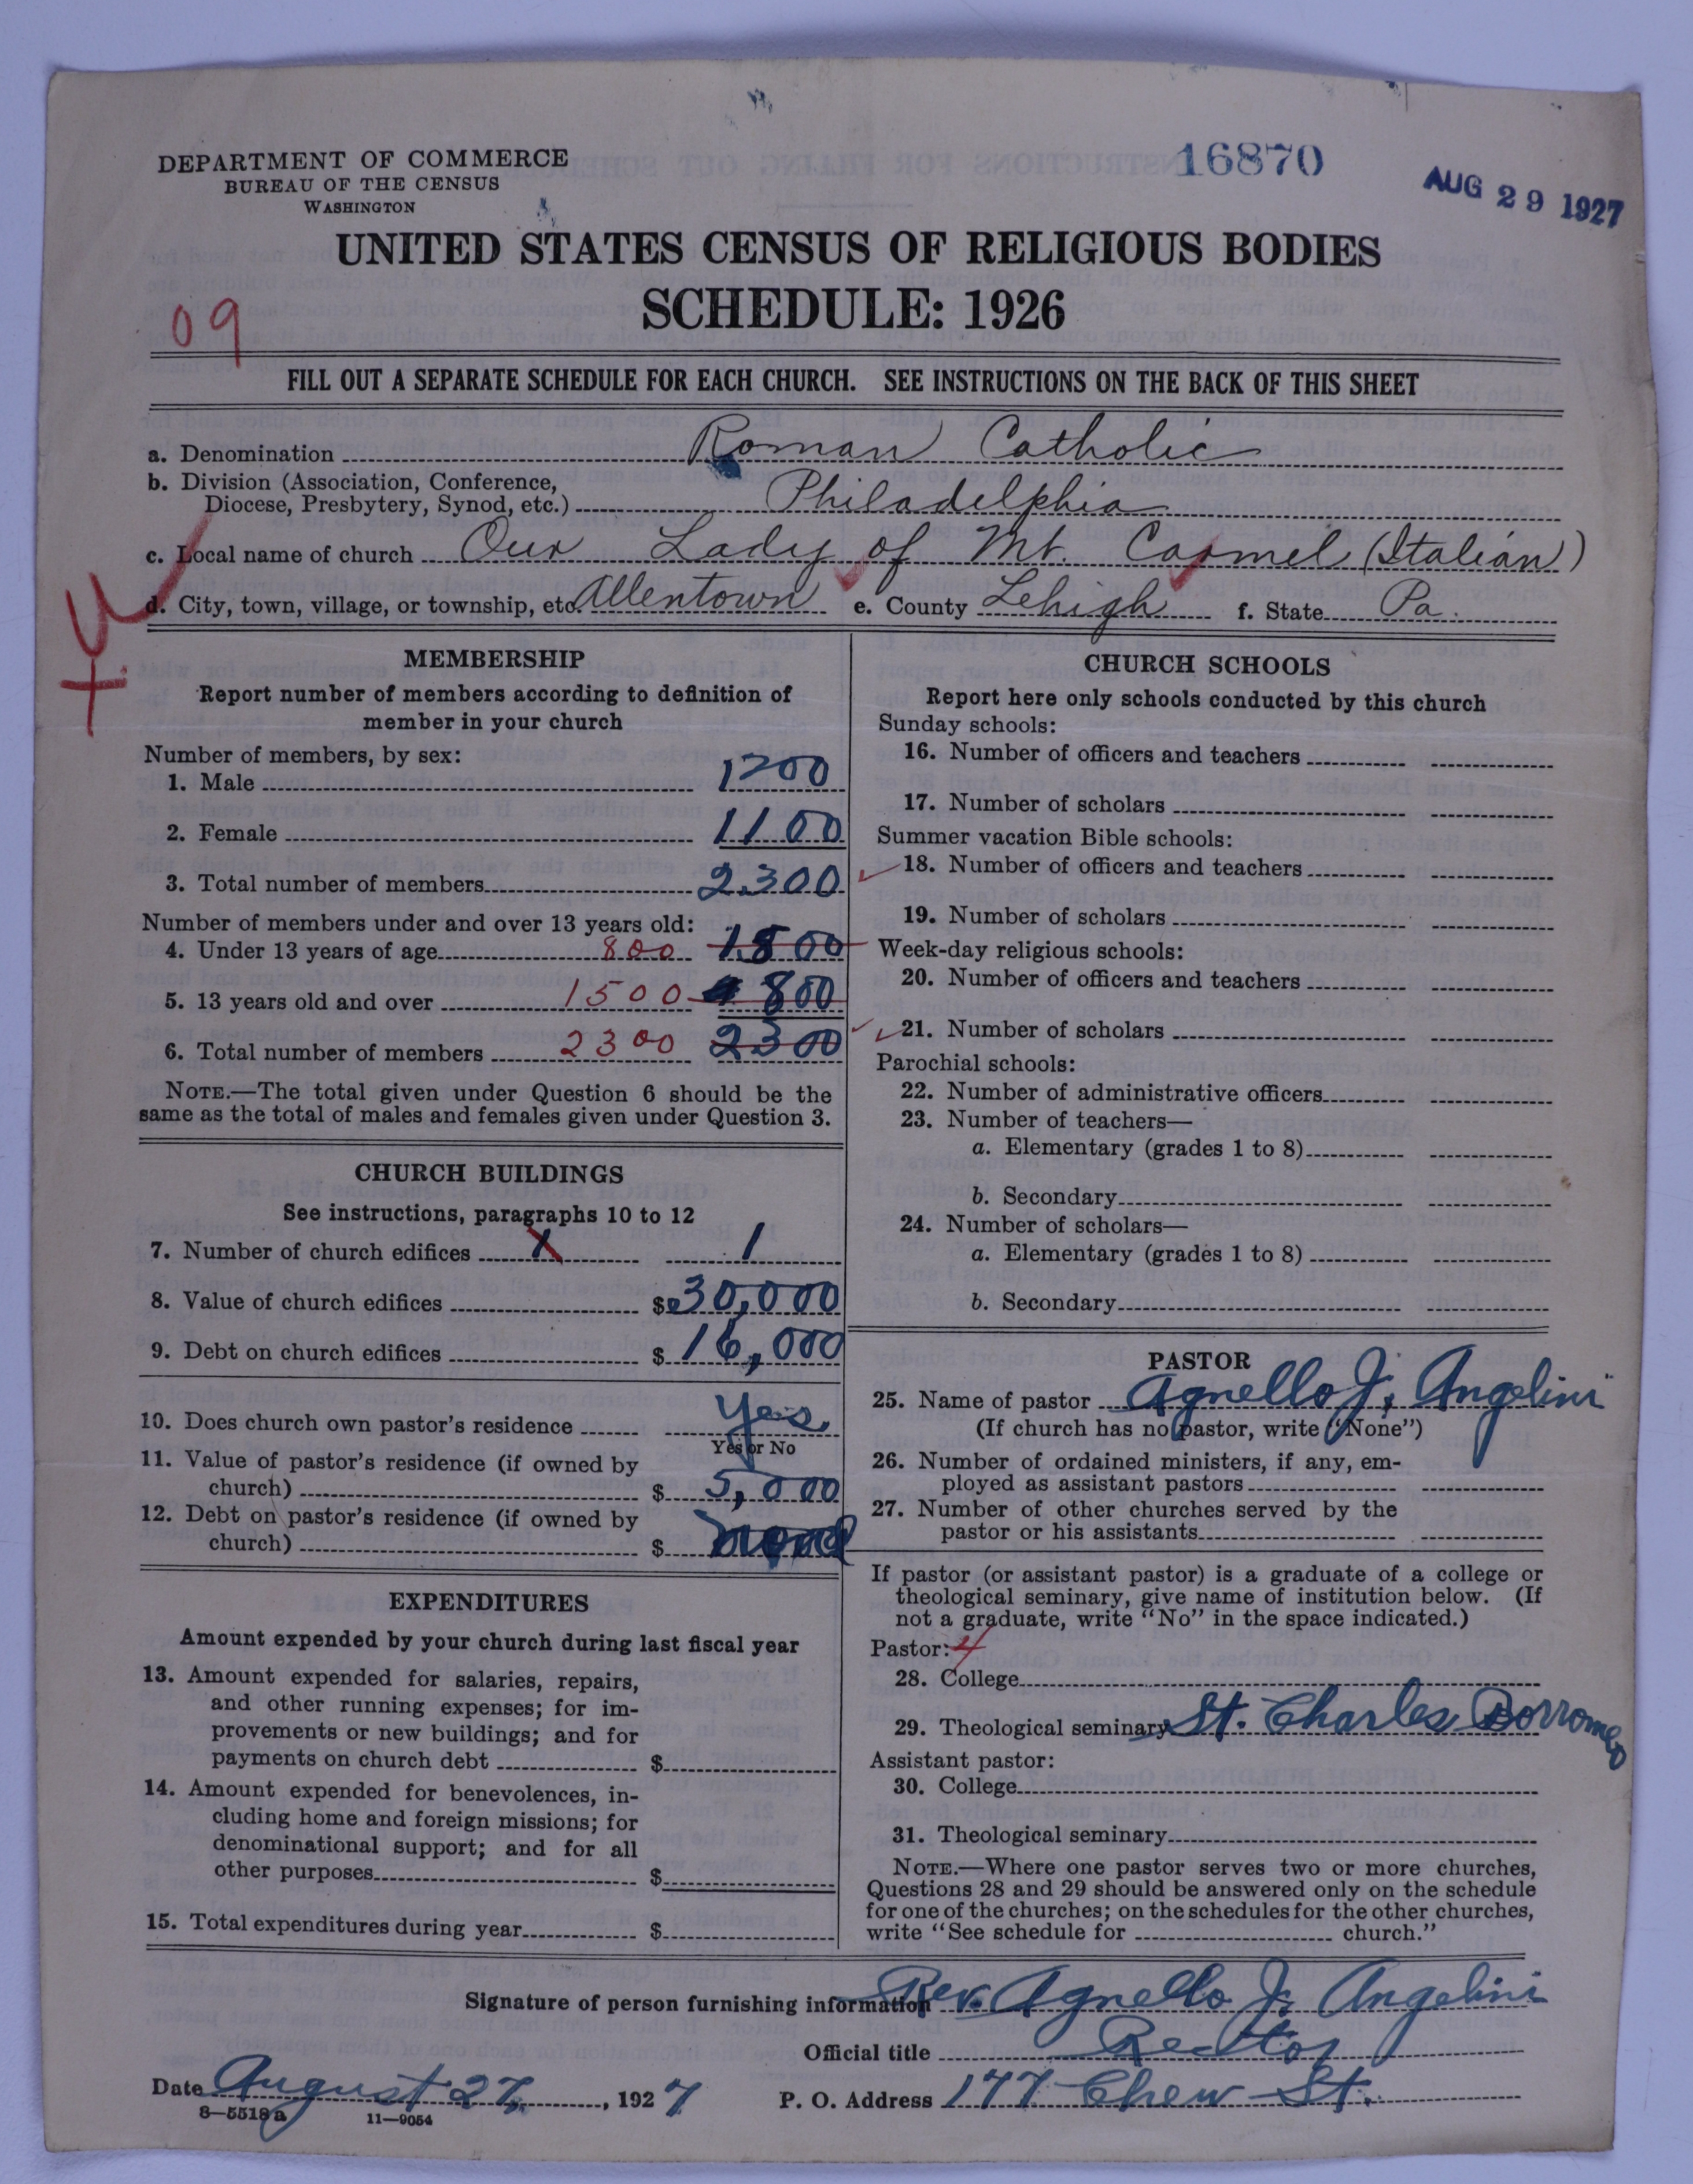 DEPARTMENT OF COMMERCE
BUREAU OF THE CENSUS
WASHINGTON
16870
AUG 29 1927
UNITED STATES CENSUS OF RELIGIOUS BODIES
SCHEDULE: 1926
09
FILL OUT A SEPARATE SCHEDULE FOR EACH CHURCH. SEE INSTRUCTIONS ON THE BACK OF THIS SHEET
a. Denomination Roman Catholic
b. Division (Association, Conference,
Diocese, Presbytery, Synod, etc.) Philadelphia
c. Local name of church Our Lady of Mt. Carmel (Italian)
d. City, town, village, or township, etc. Allentown e. County Lehigh f. State Pa.
MEMBERSHIP
Report number of members according to definition of
member in your church
Number of members, by sex:
1. Male 1200
2. Female 1100
3. Total number of members 2300
Number of members under and over 13 years old:
4. Under 13 years of age 800 1500
5. 13 years old and over 1500 800
6. Total number of members 2300 2300
NOTE.—The total given under Question 6 should be the
same as the total of males and females given under Question 3.
CHURCH BUILDINGS
See instructions, paragraphs 10 to 12
7. Number of church edifices 1 1
8. Value of church edifices $ 30,000
9. Debt on church edifices $ 16,000
10. Does church own pastor's residence Yes
Yes or No
11. Value of pastor's residence (if owned by
church) $ 5,000
12. Debt on pastor's residence (if owned by
church) $ none
EXPENDITURES
Amount expended by your church during last fiscal year
13. Amount expended for salaries, repairs,
and other running expenses; for im-
provements or new buildings; and for
payments on church debt $
14. Amount expended for benevolences, in-
cluding home and foreign missions; for
denominational support; and for all
other purposes $
15. Total expenditures during year $
CHURCH SCHOOLS
Report here only schools conducted by this church
Sunday schools:
16. Number of officers and teachers
17. Number of scholars
Summer vacation Bible schools:
18. Number of officers and teachers
19. Number of scholars
Week-day religious schools:
20. Number of officers and teachers
21. Number of scholars
Parochial schools:
22. Number of administrative officers
23. Number of teachers—
a. Elementary (grades 1 to 8)
b. Secondary
24. Number of scholars—
a. Elementary (grades 1 to 8)
b. Secondary
PASTOR
25. Name of pastor Agnello J. Angelini
(If church has no pastor, write "None")
26. Number of ordained ministers, if any, em-
ployed as assistant pastors
27. Number of other churches served by the
pastor or his assistants
If pastor (or assistant pastor) is a graduate of a college or
theological seminary, give name of institution below. (If
not a graduate, write "No" in the space indicated.)
Pastor: 4
28. College
29. Theological seminary St. Charles Borromeo
Assistant pastor:
30. College
31. Theological seminary
NOTE.—Where one pastor serves two or more churches,
Questions 28 and 29 should be answered only on the schedule
for one of the churches; on the schedules for the other churches,
write "See schedule for church."
Signature of person furnishing information Rev. Agnello J. Angelini
Official title Rector
Date August 27, 1927 P. O. Address 177 Chew St.
8—5518a 11—9054